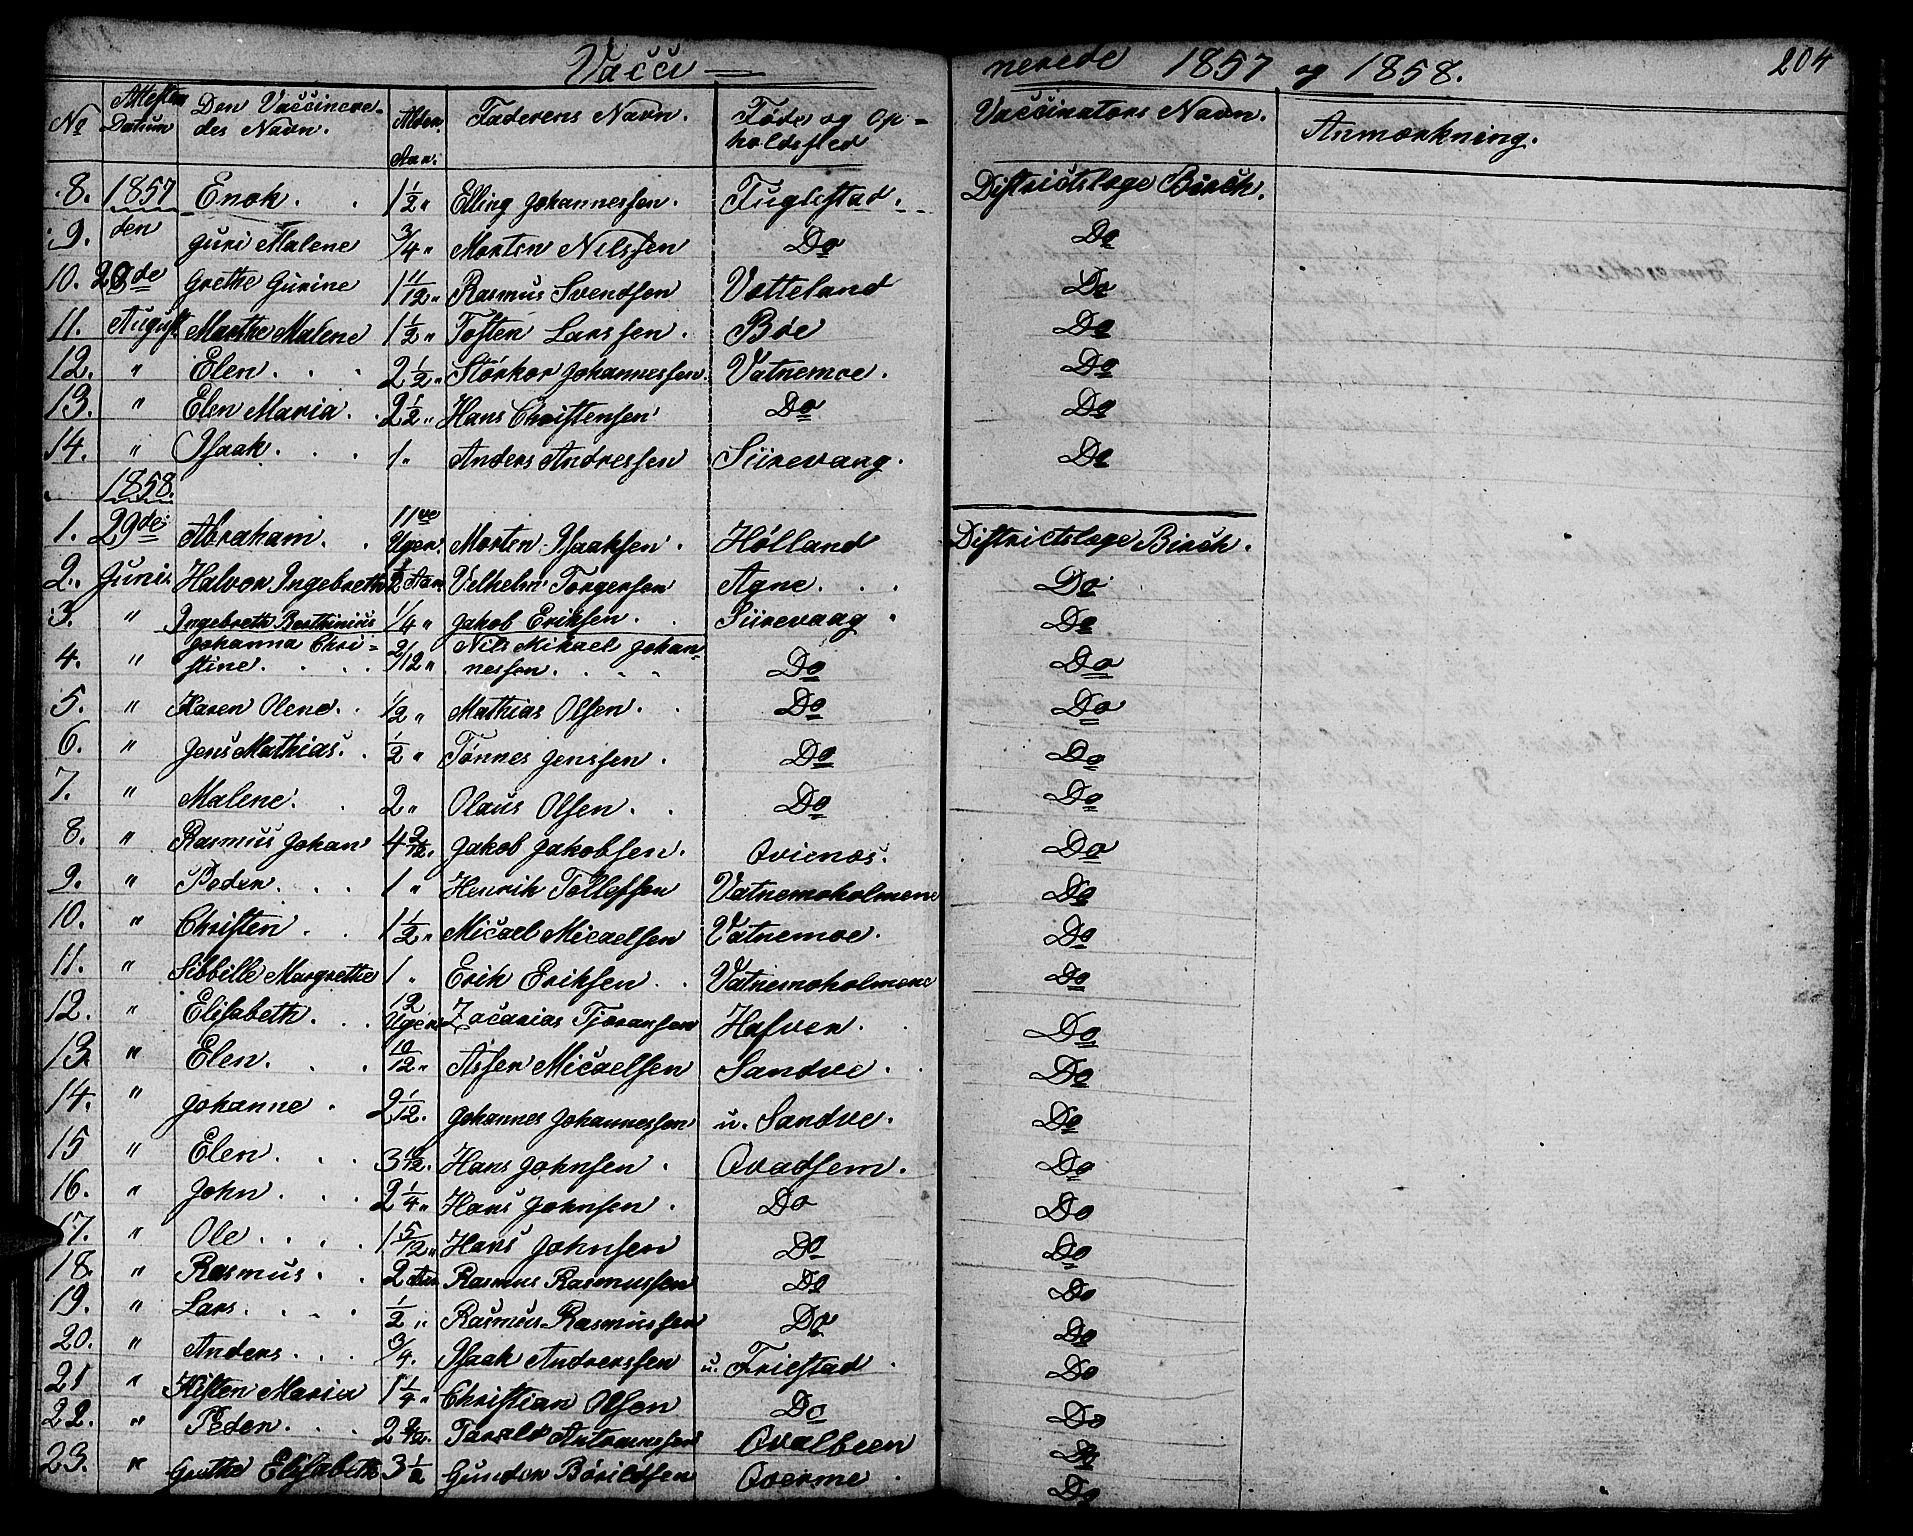 Vacci- nerede 1857 og 1858. 204
No Attesten Datum Den Vaccinere- des Navn. Alder. Aar. Faderens Navn. Føde og Op- holdssted Vaccinators Navn. Anmærkning.
8. 1857 Enok. 1 1/2 " Elling Johannessen. Fuglestad. Districtslæge Birch.
9. den Guri Malene 3/4 " Morten Nilssen Do Do
10. 29de Grethe Gurine 1 11/12 " Rasmus Svendsen Vatteland Do
11. August Marthe Malene 1 1/2 " Tosten Larssen. Bøe Do
12. " Elen. 2 1/2 " Størkor Johannessen. Vatnemoe. Do
13. " Elen Maria. 2 1/2 " Hans Christensen Do Do
14. " Isaak. 1 " Anders Andressen Siirevaag. Do
1858.
1. 29de Abraham. 11ve Uger. Morten Isaaksen. Hølland Districtslæge Birch.
2. Juni Halvor Ingebreth 1/2 Aar Velhelm Torgersen Agne. Do
3. " Ingebreth Berthinius 1/4 " Jakob Eriksen. Siirevaag Do
4. " Johanna Chri- stine. 2/12 " Nils Mikael Johan- nessen. Do Do
5. " Karen Olene. 1/2 " Mathias Olsen. Do Do
6. " Jens Mathias. 1/2 " Tønnes Jenssen. Do Do
7. " Malene. 2 " Olaus Olsen. Do Do
8. " Rasmus Johan 4 2/12. Jakob Jakobsen. Qvienæs. Do
9. " Peder. 1 " Henrik Tollefsen Vatnemoholmene Do
10. " Christen. 1 1/2 " Micael Micaelsen Vatnemoe. Do
11. " Sibbille Margrethe 1 " Erik Eriksen. Vatnemoholmene Do
12. " Elisabeth. 12 Uger Zacarias Tjøransen Hafver. Do
13. " Elen. 10/12 " Asser Micaelsen Sandve. Do
14. " Johanne. 2 1/12. Johannes Johannessen u. Sandve. Do
15 " Elen. 3 10/12. Hans Johnsen. Qvadsem. Do
16. " John. 2 1/4 " Hans Johnsen. Do Do
17. " Ole. 1 5/12 " Hans Johnsen Do Do
18. " Rasmus. 2 Aar Rasmus Rasmussen Do Do
19. " Lars. 1/2 " Rasmus Rasmussen Do Do
20. " Anders. 3/4. Isaak Andreassen u. Friestad. Do
21 " Kisten Maria 1 1/4 " Christian Olsen Do Do
22. " Peder. 2 Tarald Qvalbeen Do
23. " Grethe Elisabeth 3 1/2 Gunder Børildsen Qværme. Do